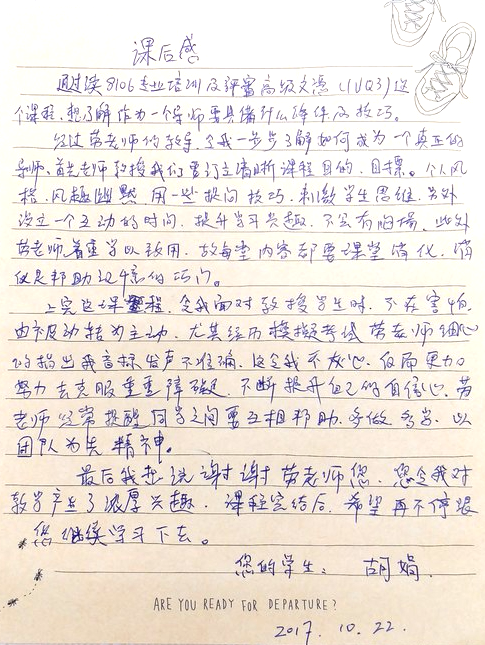 课后感
通过读8106专业培训及评审高级文凭(IVQ3)这
个课程,想了解作为一个导师要具备什么条件及技巧。
经过黄老师的教导,令我一步步了解如何成为一个真正的
导师。黄老师教授我们要订立清晰课程目的、目标。个人风
格,风趣幽默,用一些提问技巧,刺激学生思维,另外
设立一个互动的时间,提升学习兴趣,不会有闷场,此外
黄老师着重学以致用,故每堂内容都要课堂简化,简
仅是帮助记忆的巧门。
上完这课程,令我面对教授学生时,不在害怕,
由被动转为主动,尤其经历模拟考试黄老师细心
的指出我音标发声不准确,这令我不灰心,反而更加
努力去克服重重障碍,不断提升自己的自信心,黄
老师经常提醒同学之间要互相帮助,多做多学,以
团队为先精神。
最后我想说谢谢黄老师您,您令我对
教学产生了浓厚兴趣,课程完结后,希望再不停跟
您继续学习下去。
您的学生:胡娟.
ARE YOU READY FOR DEPARTURE?
2017. 10. 22.